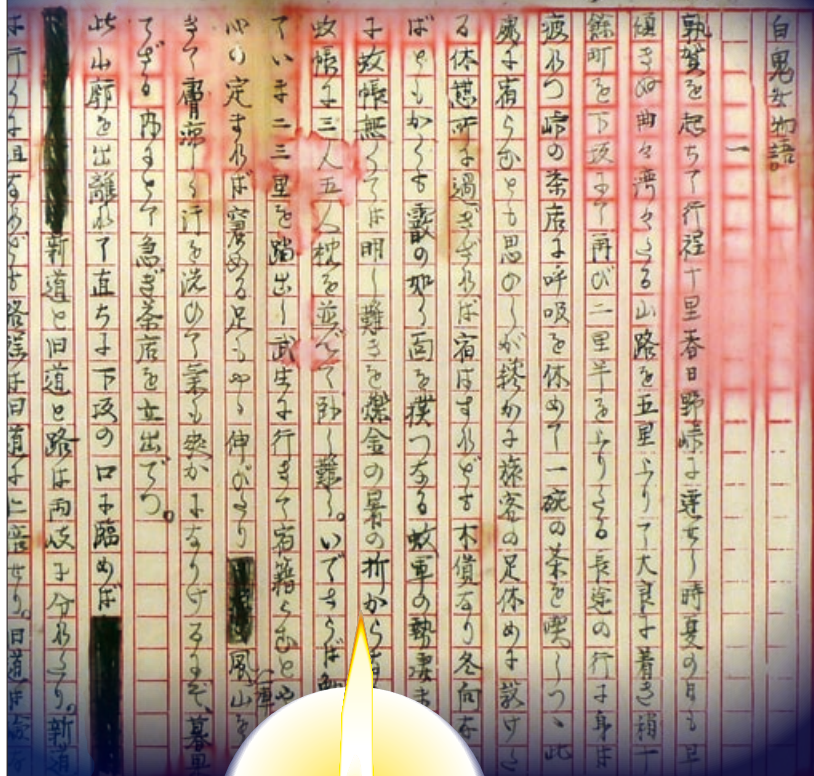 白鬼女物語
一
敦賀を起ちて行程十里春日野峠に達せし時夏の日も早
傾きぬ曲々湾々たる山路を五里よりて大良に着き稍十
餘町を下坂にて再び二里半をよりたる長途の行に身は
疲れつ峠の茶店に呼吸を休めて一碗の茶を喫しつゝ此
處に宿らむとも思ひしが纔かに旅客の足休めに設けた
る休憩所に過ぎざれば宿はすれども木賃なり冬向な
ばともかくも霰の如く面を撲つなる蚊軍の勢凄ま
に蚊帳無くては明し難きを爍金の暑の折から
蚊帳に三人五人枕を並べて臥し難し。いでさらば
ていま二三里を踏出し武生に行きて宿籍らむとや
心の定まれば窘める足もやゝ伸びたり 風山を
きて膚涼しく汗を洗ひて氣も爽かになりけるにぞ、暮果
てざる内にとて急ぎ茶店を立出でつ。
此山廓を出離れて直ちに下坂の口に臨めば
新道と旧道と路は両岐に分れたり。新道
は行くに且 ども路程は旧道に 倍せり。旧道は